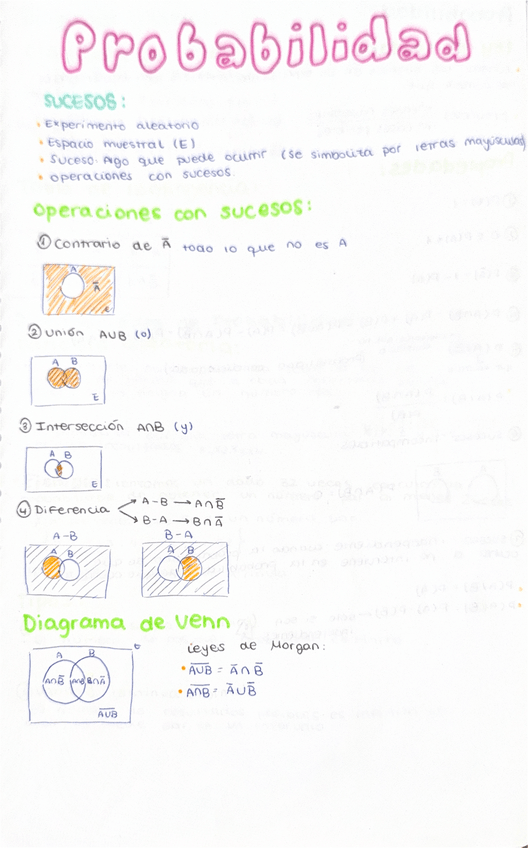 Probabilidad
SUCESOS:
• Experimento aleatorio
• Espacio muestral (E)
• Suceso. Algo que puede ocurrir (se simboliza por letras mayúsculas)
• operaciones con sucesos.
Operaciones con sucesos:
① Contrario de A̅ todo lo que no es A
A
A̅
E
② Unión AUB (o)
A B
E
③ Intersección A∩B (y)
A B
E
④ Diferencia
A-B → A∩B̅
B-A → B∩A̅
A-B
A B
B-A
A B
Diagrama de Venn
A B
A∩B̅ A∩B B∩A̅
A̅U̅B̅
Leyes de Morgan:
• A̅U̅B̅ = A̅ ∩ B̅
• A̅∩̅B̅ = A̅ U B̅